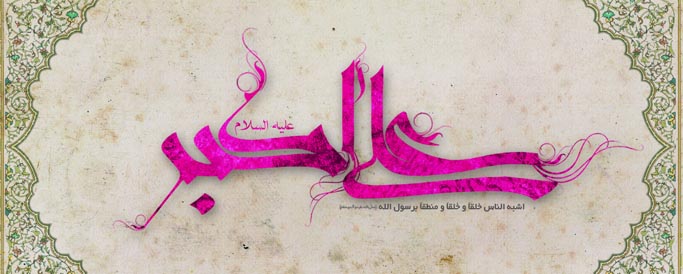 علی الاکبر
علیه السلام
اشبه الناس خَلقاً و خُلقاً و منطقاً برسول الله